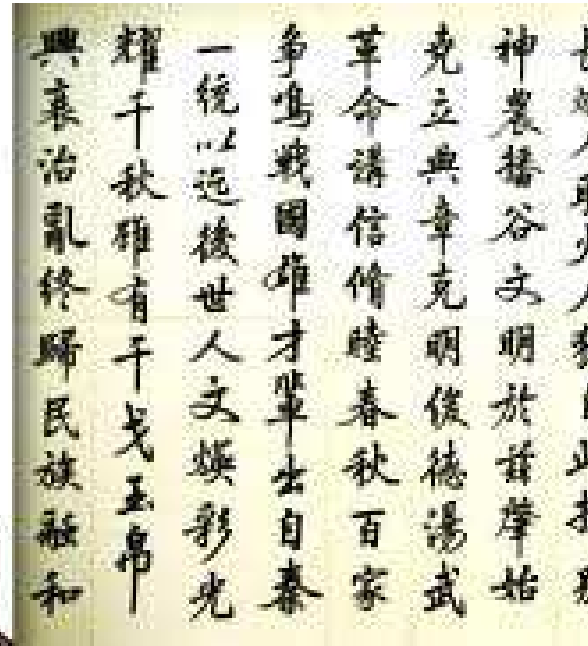 神農播谷文明於茲肇始
克立典章克明俊德湯武
革命講信脩睦春秋百家
爭鳴戰國雄才輩出自秦
一統以迄後世人文煥彩光
耀千秋雖有干戈玉帛
興衰治亂終歸民族融和